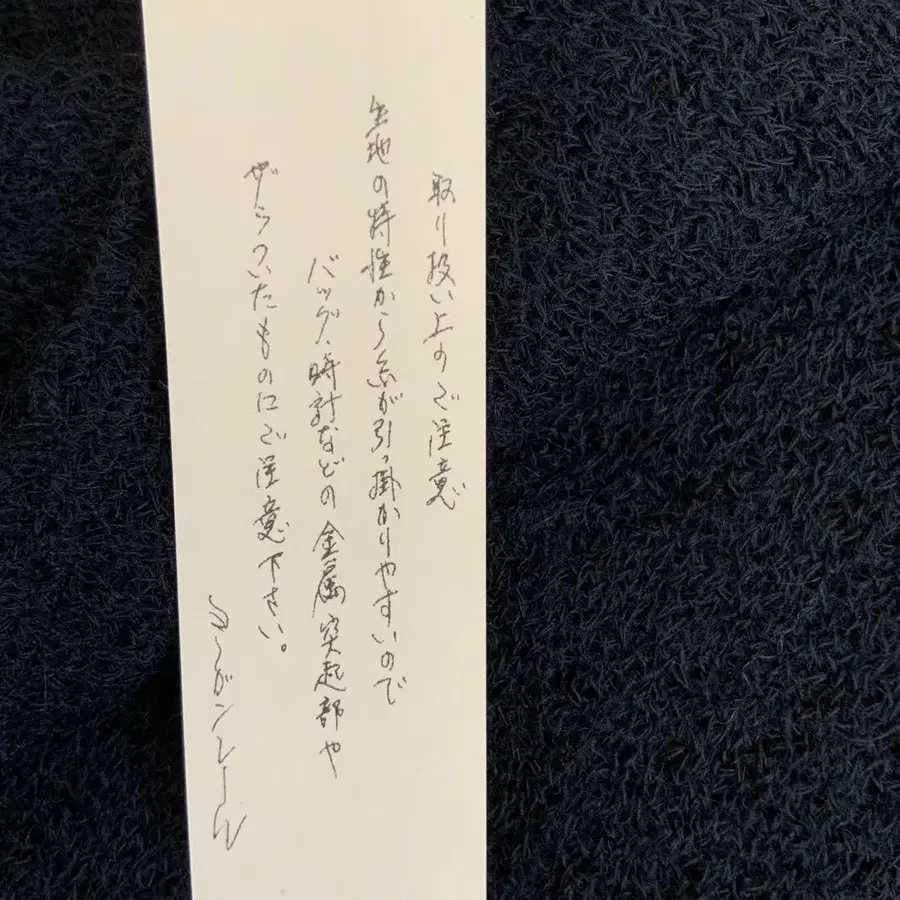 取り扱い上のご注意
生地の特性から糸が引っ掛かりやすいので
バッグ、時計などの金属突起部や
ザラついたものにご注意下さい。
ヨーガンレール